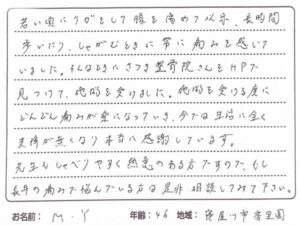 若い頃にケガをして腰を痛めて以来、長時間
歩いたり、しゃがむときに常に痛みを感じて
いました。そんなときにさつき整骨院さんをHPで
見つけて、施術を受けました。施術を受ける度に
どんどん痛みが楽になっていき、今では生活に全く
支障が無くなり本当に感謝しています。
先生もしゃべりやすく熱意のある方ですので、もし
長年の痛みで悩んでいる方は是非相談してみて下さい。
お名前: M.Y 年齢: 46 地域: 寝屋川市香里園